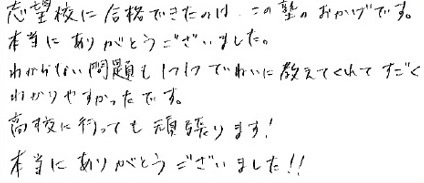 志望校に合格できたのは、この塾のおかげです。
本当にありがとうございました。
わからない問題も1つ1つていねいに教えてくれてすごく
わかりやすかったです。
高校に行っても頑張ります!
本当にありがとうございました!!